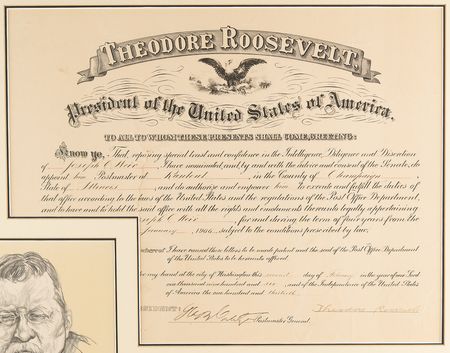 THEODORE ROOSEVELT,
President of the United States of America.
TO ALL TO WHOM THESE PRESENTS SHALL COME, GREETING:
Know ye, That, reposing special trust and confidence in the Intelligence, Diligence and Discretion
of Joseph C. Weir, I have nominated, and, by and with the advice and consent of the Senate, do
appoint him Postmaster at in the County of Champaign,
State of Illinois, and do authorize and empower him to execute and fulfill the duties of
that office according to the laws of the United States and the regulations of the Post Office Department,
and to have and to hold the said office with all the rights and emoluments thereunto legally appertaining
seph C. Weir, for and during the term of four years from the
January 1906, subject to the conditions prescribed by law.
whereof I have caused these letters to be made patent and the seal of the Post Office Department
of the United States to be hereunto affixed.
my hand at the city of Washington this second day of in the year of our Lord
one thousand nine hundred and six, and of the Independence of the United States
of America the one hundred and thirtieth.
Postmaster General.
Theodore Roosevelt